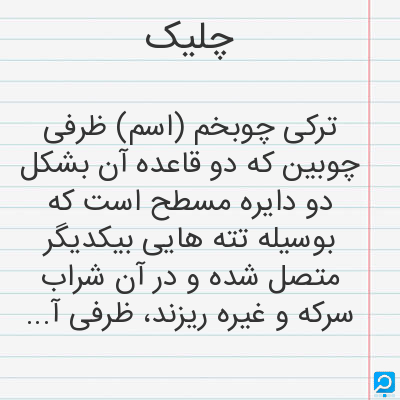 چلیک
ترکی چوبخم (اسم) ظرفی
چوبین که دو قاعده آن بشکل
دو دایره مسطح است که
بوسیله تته هایی بیکدیگر
متصل شده و در آن شراب
سرکه و غیره ریزند، ظرفی آ...